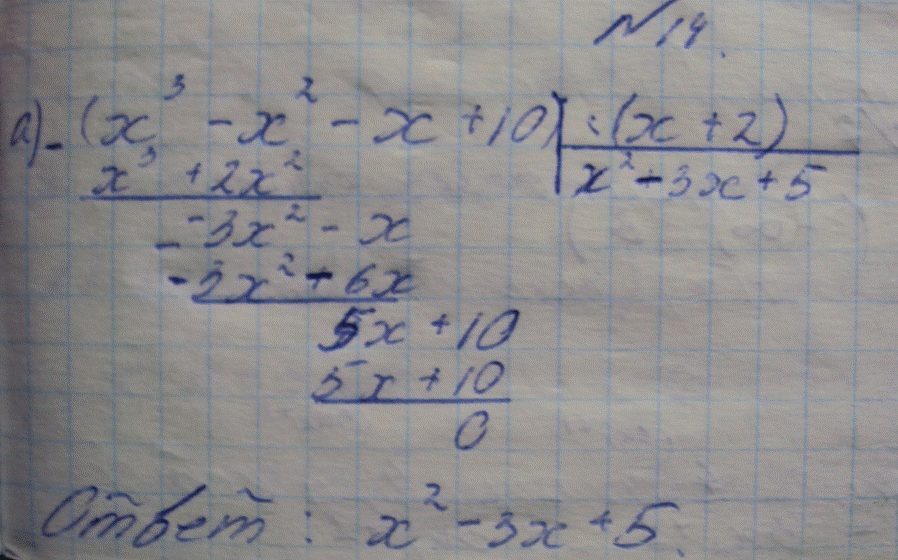 N 14.
а) - (x³ - x² - x + 10) : (x + 2)
x³ + 2x² x² - 3x + 5
- -3x² - x
-3x² - 6x
5x + 10
5x + 10
0
Ответ: x² - 3x + 5.